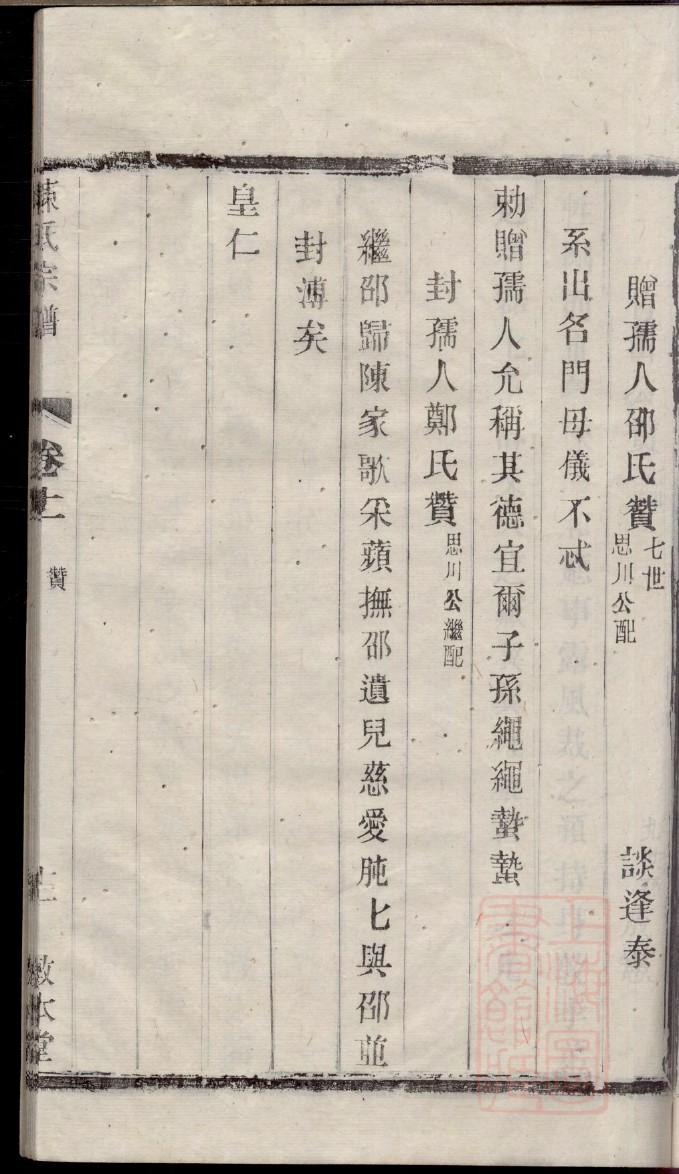 贈孺人邵氏贊 七世思川公配 談逢泰
系出名門母儀不忒
勅贈孺人允稱其德宜爾子孫繩繩蟄蟄
封孺人鄭氏贊 思川公繼配
繼邵歸陳家歌采蘋撫邵遺兒慈愛肫匕與邵並
封溥矣
皇仁
陳氏宗譜 卷上 贊 敬本堂